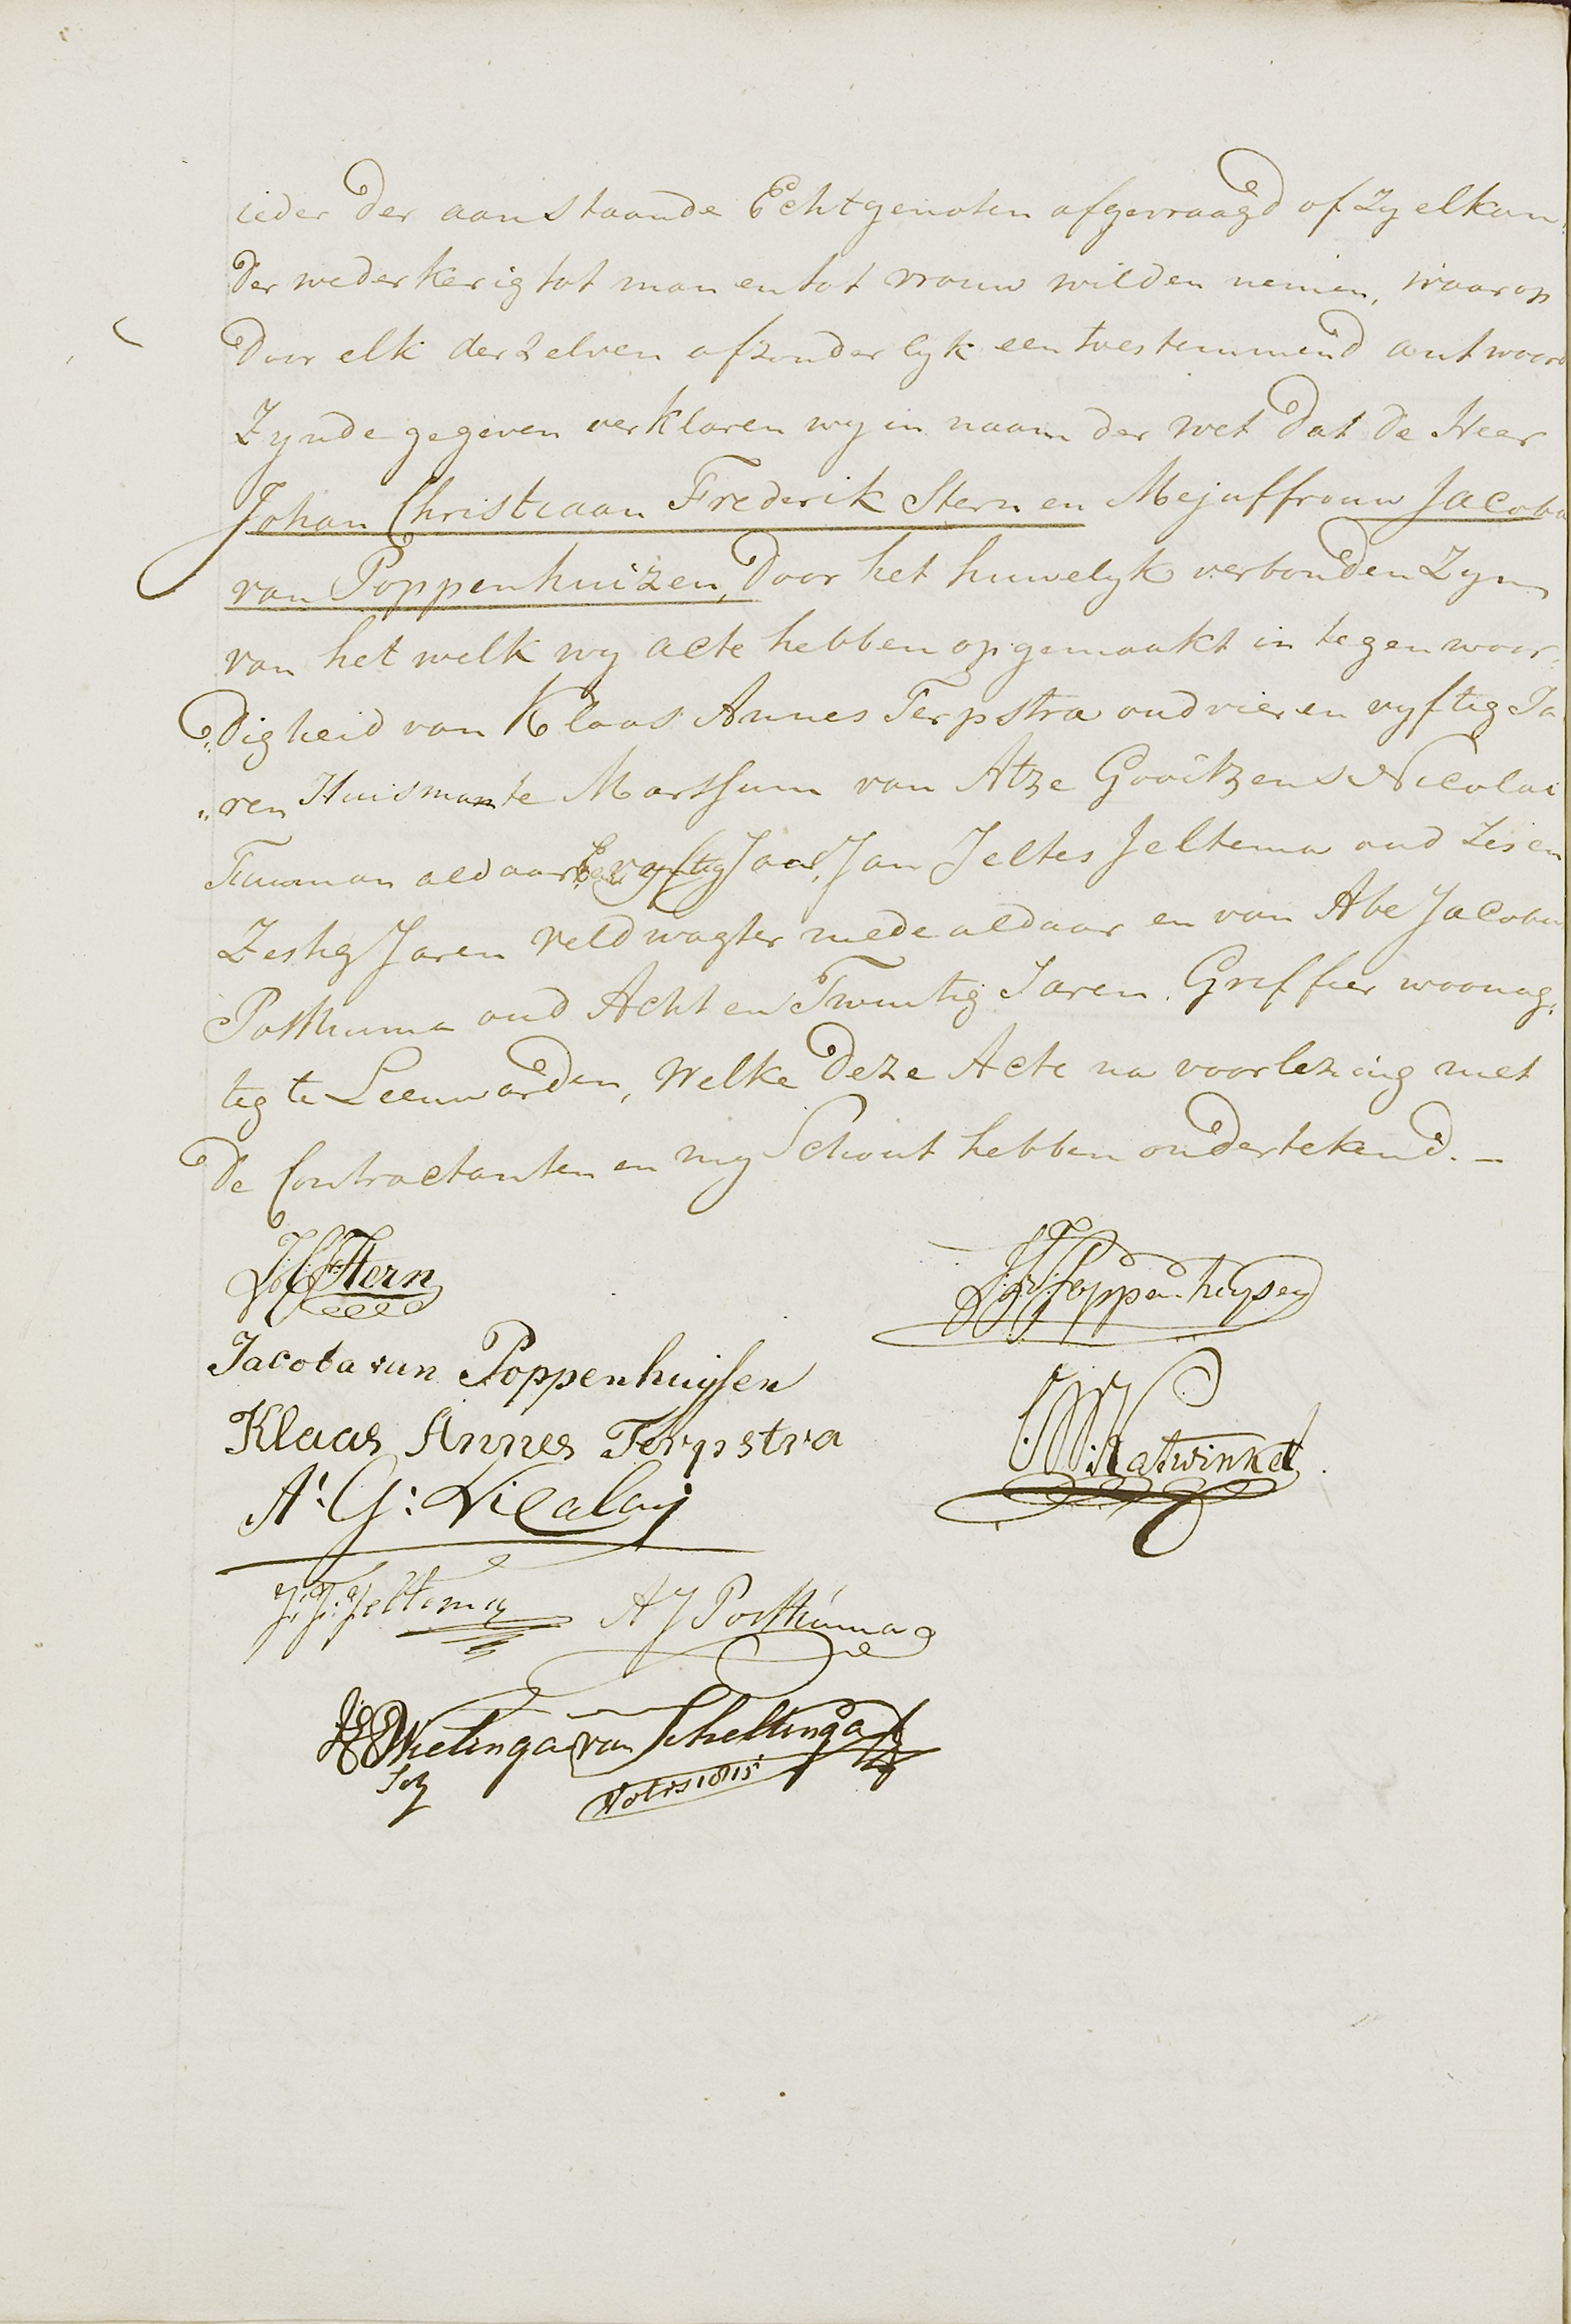 ieder der aanstaande Echtgenoten afgevraagd of Zy elkan
der wederkerig tot man en tot vrouw wilden nemen, waarop
door elk derzelven afzonderlyk een toestemmend antwoord
Zynde gegeven verklaren wy in naam der wet dat de Heer
Johan Christiaan Frederik Stern en Mejuffrouw Jacoba
van Poppenhuizen, door het huwelyk verbonden Zyn
van het welk wy acte hebben opgemaakt in tegenwoor,,
,,digheid van Klaas Annes Terpstra oud vier en vyftig Ja
,,ren Huisman te Marssum van Atze Gooitzens Nicolai
aldaar vyftig Jaar, Jan Jeltes Jeltema oud Zes en
Zestig Jaren veldwagter mede aldaar en van Abe Jacobus
Posthuma oud Acht en Twintig Jaren Griffier woonag,,
tig te Leeuwarden, Welke deze Acte na voorlezing met
de Contractanten en my Schout hebben ondertekend. —
JCF Stern
Poppenhuysen
Jacoba van Poppenhuysen
Klaas Annes Terpstra
Katwinkel
A: G: Nicalay
J: J: Jeltema A J Posthuma
Wielinga van Scheltinga